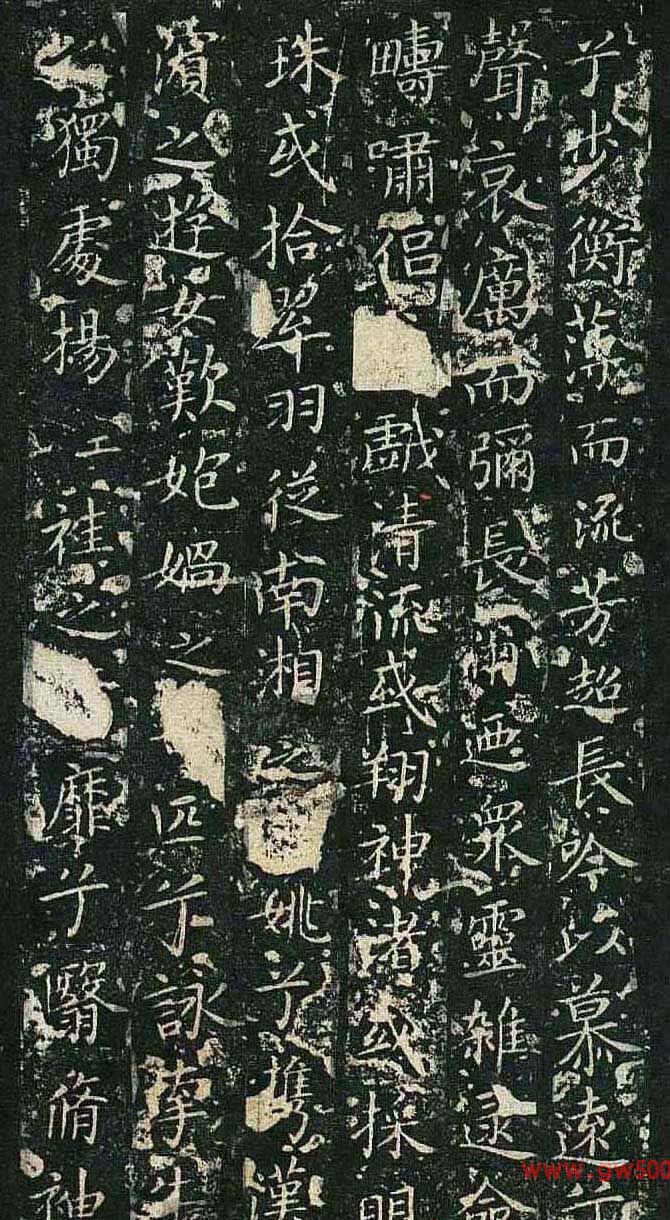 兮步衡薄而流芳超長吟以慕遠兮
聲哀厲而彌長爾迺眾靈雜遝命
疇嘯侶戲清流或翔神渚或採明
珠或拾翠羽從南湘之姚兮攜漢
濱之遊女歎妑媧之匹兮詠牽牛
之獨處揚袿之靡兮翳脩袖
www.gw500